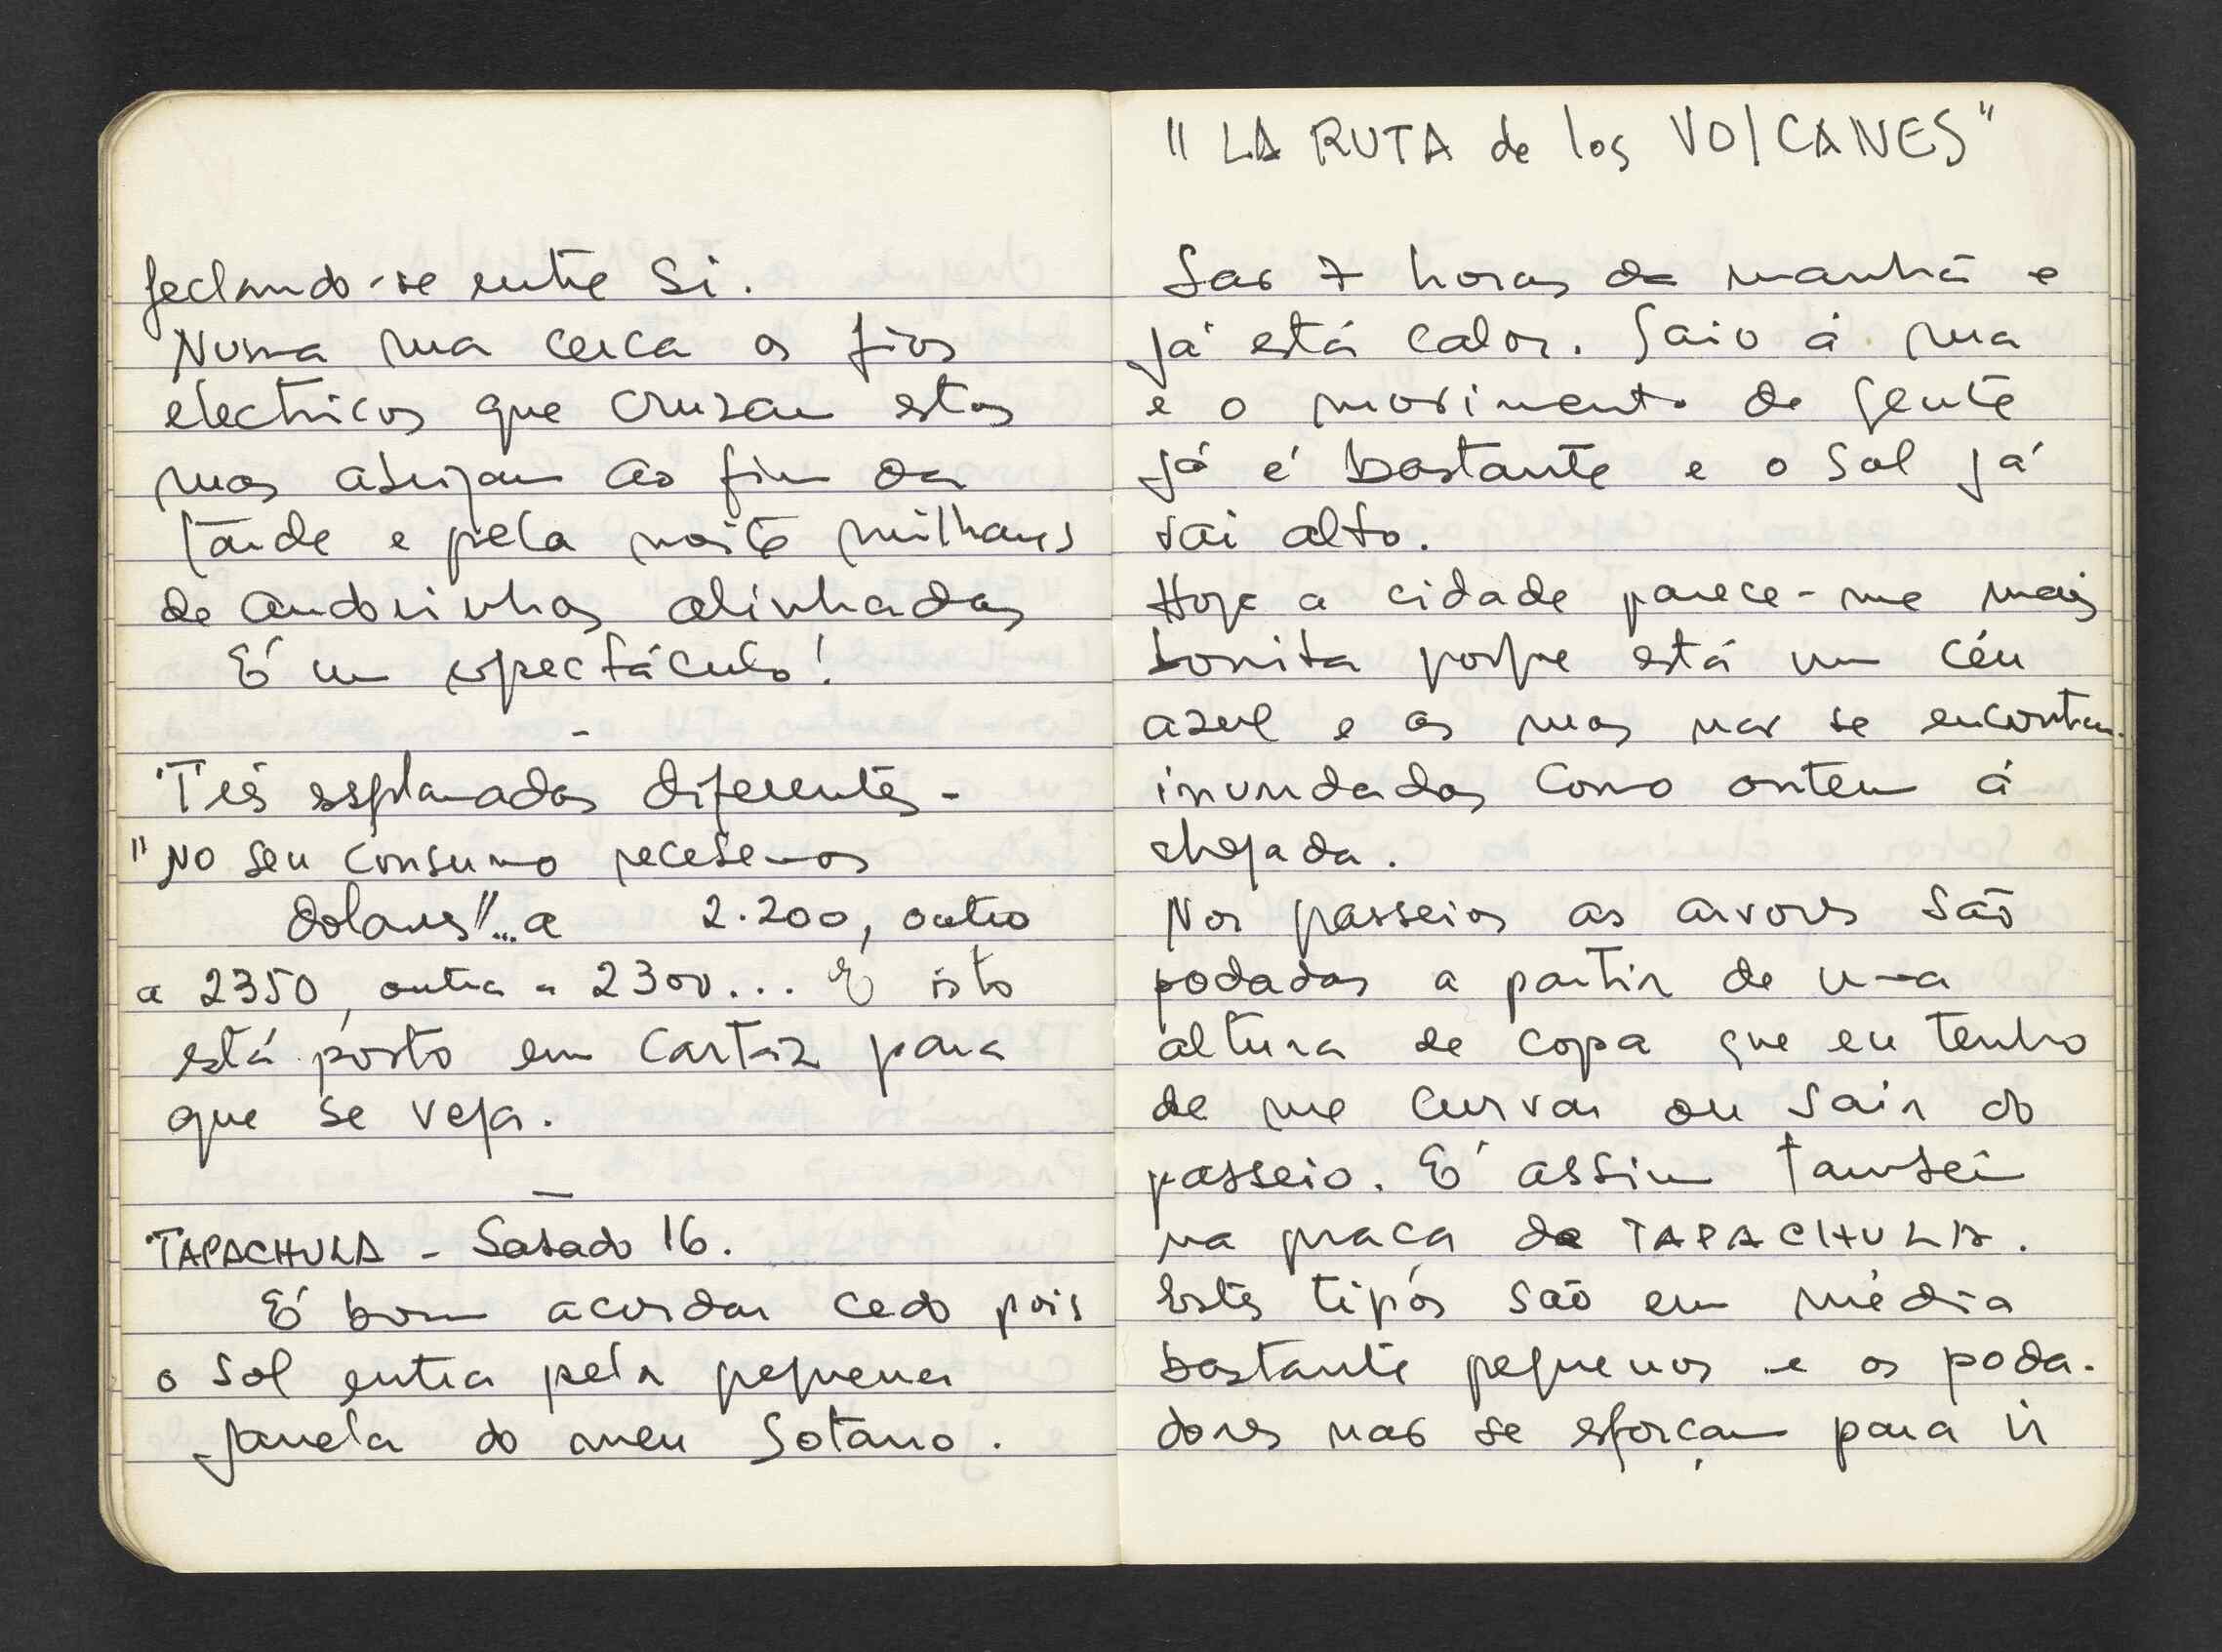 fechando-se entre si.
Numa rua cerca os fios
electricos que cruzam estas
ruas abrigam ao fim da
tarde e pela noite milhares
de andorinhas alinhadas
É um espectáculo!
-
Três esplanadas diferentes -
"No seu consumo recebemos
dolares"... a 2.200, outro
a 2350, outra a 2300... E isto
está posto em cartaz para
que se veja.
—
TAPACHULA - Sabado 16.
É bom acordar cedo pois
o sol entra pela pequena
janela do meu sotano.
"LA RUTA de los VOlCANES"
Sao 7 horas da manhã e
já está calor. Saio á rua
e o movimento de gente
já é bastante e o sol já
vai alto.
Hoje a cidade parece-me mais
bonita porque está um céu
azul e as ruas nao se encontram
inundadas como ontem á
chegada.
Nos passeios as arvores são
podadas a partir de uma
altura de copa que eu tenho
de me curvar ou sair do
passeio. É assim também
na praca de TAPACHULA.
Estes tipos são em média
bastante pequenos e os poda-
dores nao se esforçam para ir